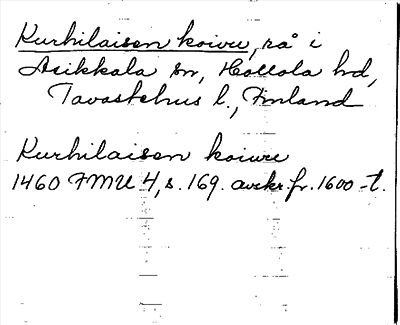 Kurhilaisen koivu, rå i
Asikkala sn, Hollola hd,
Tavastehus l., Finland
Kurhilaisen koiuu
1460 FMU 4, s. 169. avskr. fr. 1600-t.